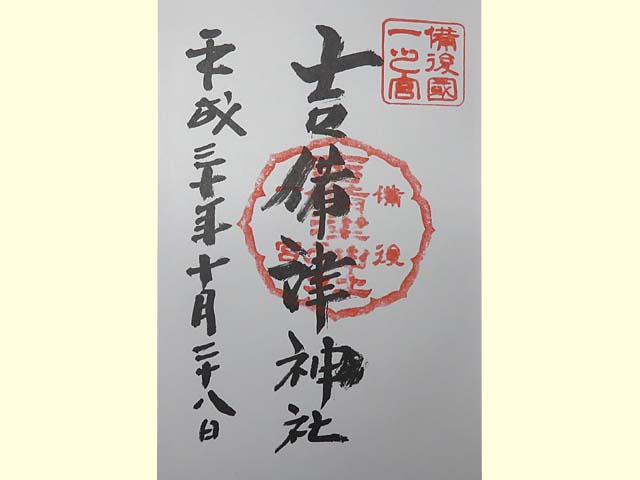 備後國
一之宮
吉備津神社
備後
一宮
吉備津神社
平成三十年十月二十八日